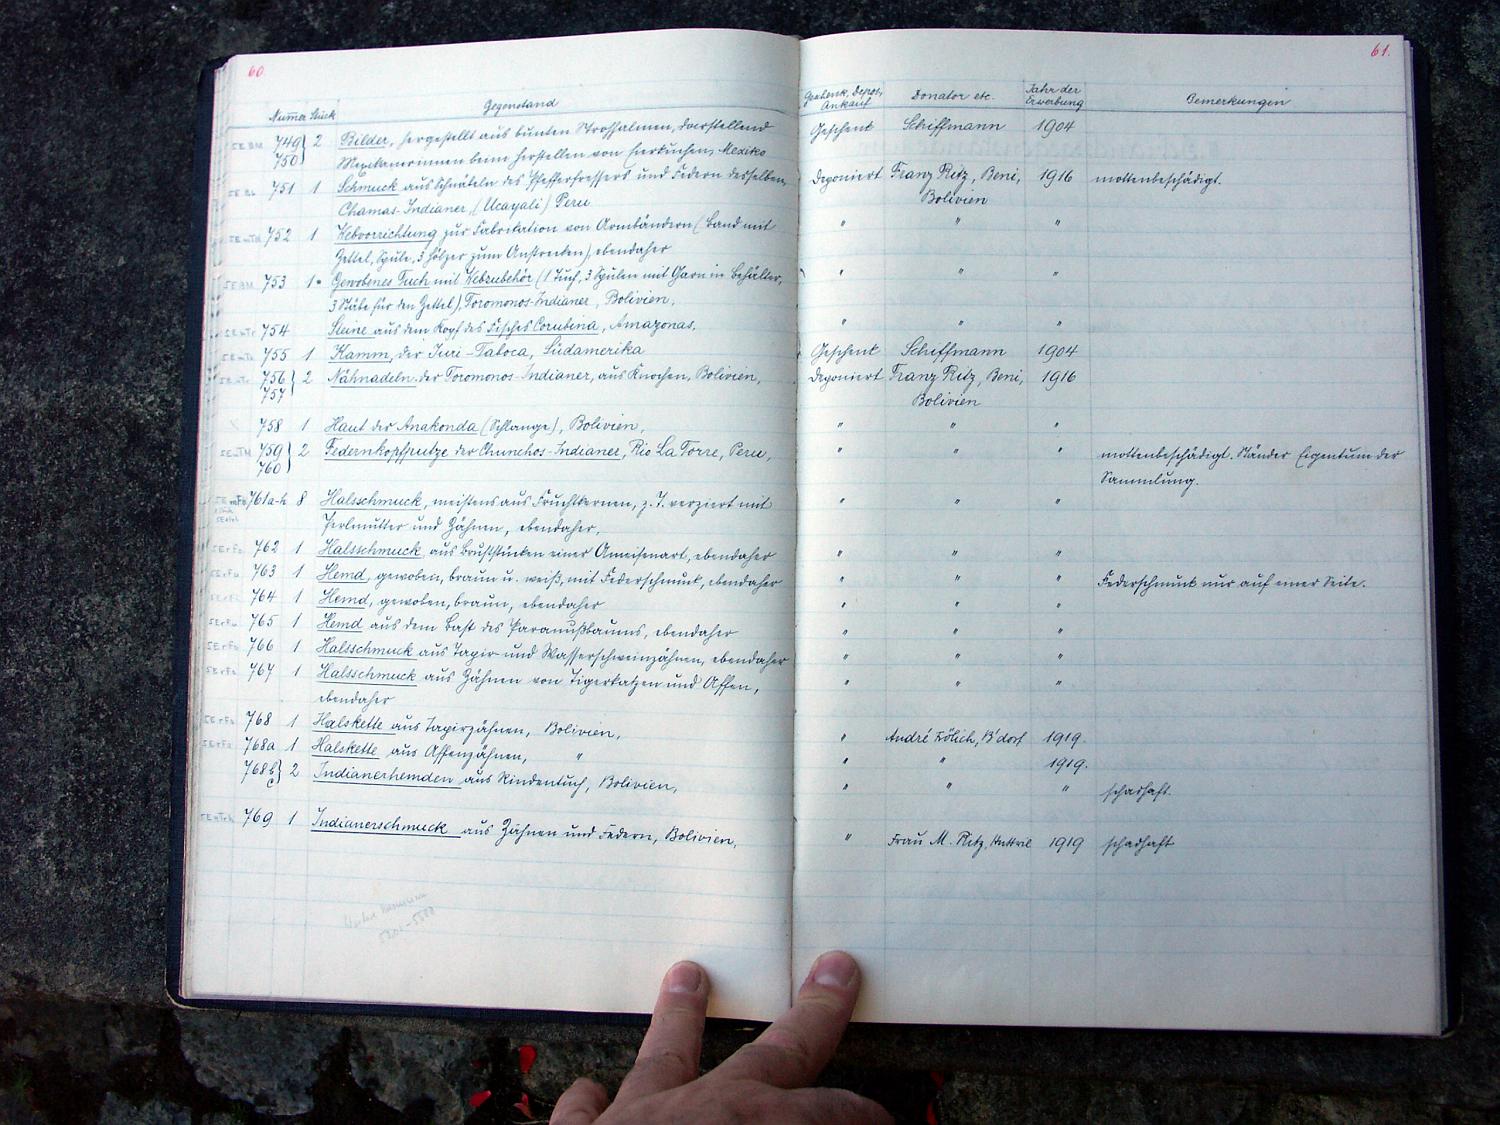 60
Numer Stück Gegenstand
749 2 Bilder, hergestellt aus bunten Strohhalmen, darstellend
750 Mexikanerinnen beim herstellen von Eierkuchen, Mexiko
751 1 Schmuck aus Schnäbeln des Pfefferfressers und Federn desselben,
Chamas-Indianer, (Ucayali) Peru
752 1 Webvorrichtung zur Fabrikation von Armbändern (Band mit
Zettel, Spule, 3 Hölzer zum Anstrecken) ebendaher
753 1 Gewobenes Tuch mit Webzubehör (1 Tuch, 3 Spulen mit Garn in Behälter,
3 Stäbe für den Zettel), Toromonos-Indianer, Bolivien,
754 Steine aus dem Kopf des Fisches Corubina, Amazonas.
755 1 Kamm, der Juri-Taboca, Südamerika
756 2 Nähnadeln der Toromonos-Indianer, aus Knochen, Bolivien,
757
758 1 Haut der Anakonda (Schlange), Bolivien,
759 2 Federnkopfputze der Chunchos-Indianer, Rio La Torre, Peru,
760
761a-h 8 Halsschmuck, meistens aus Fruchtkernen, z. T. verziert mit
Perlmutter und Zähnen, ebendaher,
762 1 Halsschmuck aus Bruststücken einer Ameisenart, ebendaher
763 1 Hemd, gewoben, braun u. weiß, mit Federschmuck, ebendaher
764 1 Hemd, gewoben, braun, ebendaher
765 1 Hemd aus dem Bast des Paranußbaums, ebendaher
766 1 Halsschmuck aus Tapir- und Wasserschweinzähnen, ebendaher
767 1 Halsschmuck aus Zähnen von Tigerkatzen und Affen,
ebendaher
768 1 Halskette aus Tapirzähnen, Bolivien,
768a 1 Halskette aus Affenzähnen, "
768b c 2 Indianerhemden aus Rindentuch, Bolivien,
769 1 Indianerschmuck aus Zähnen und Federn, Bolivien,
61.
Geschenk, Depos, Donator etc. Jahr der Bemerkungen
Ankauf Erwerbung
Geschenk Schiffmann 1904
Deponiert Franz Ritz, Beni, 1916 mottenbeschädigt.
Bolivien
" " "
" " "
" " "
Geschenk Schiffmann 1904
Deponiert Franz Ritz, Beni, 1916
Bolivien
" " "
" " " mottenbeschädigt. Ständer Eigentum der
Sammlung.
" " "
" " "
" " " Federschmuck nur auf einer Seite.
" " "
" " "
" " "
" " "
" André Frölich, B'dorf 1919.
" " 1919.
" " " schadhaft.
" Frau M. Ritz, Huttwil 1919 schadhaft